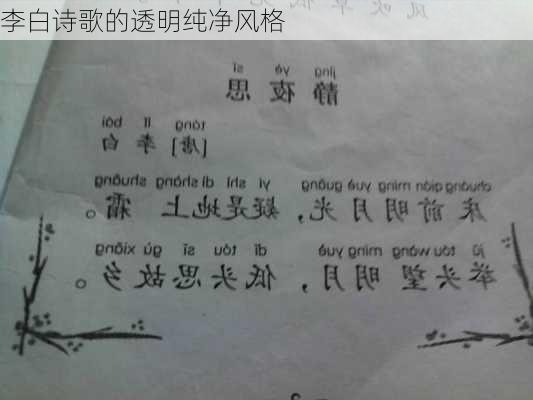 李白诗歌的透明纯净风格
风吹草低
jìng yè sī
静夜思
táng lǐ bái
[唐] 李白
chuáng qián míng yuè guāng yí shì dì shàng shuāng
床前明月光，疑是地上霜。
jǔ tóu wàng míng yuè dī tóu sī gù xiāng
举头望明月，低头思故乡。